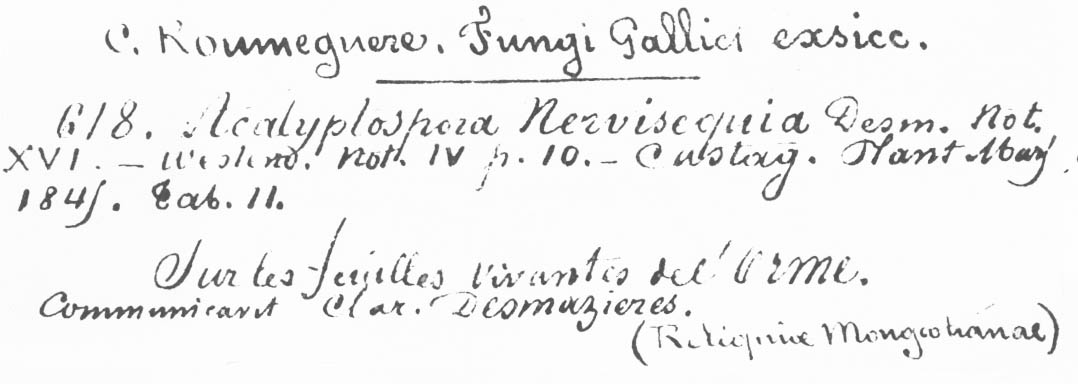 C. Roumeguere. Fungi Gallici exsicc.
618. Acalyptospora Nervisequia Desm. Not.
XVI. – Westend. Not. IV p. 10. – Castag. Plant Mars.
1845. Tab. 11.
Sur les feuilles vivantes de l'Orme.
Communicavit Clar. Desmazieres.
(Reliquiae Mougeotianae)